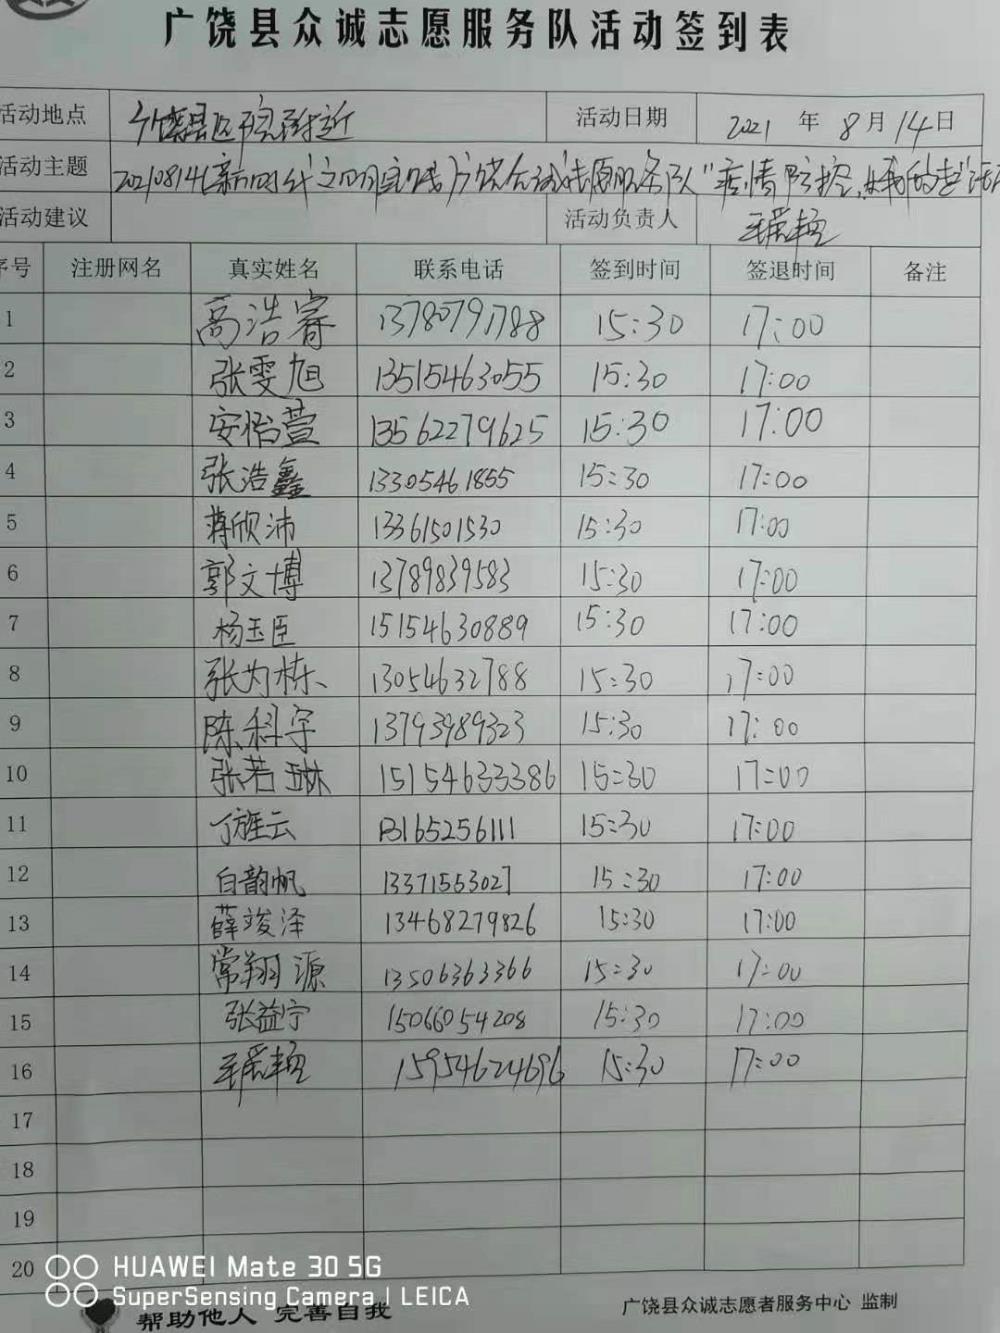 广饶县众诚志愿服务队活动签到表
活动地点 广饶县医院附近 活动日期 2021 年 8 月 14 日
活动主题 20210814(新时代文明实践)广饶众诚志愿服务队"疫情防控,
活动建议 活动负责人
序号 注册网名 真实姓名 联系电话 签到时间 签退时间 备注
1 高浩睿 13780791788 15:30 17:00
2 张雯旭 13515463055 15:30 17:00
3 安怡萱 13562279625 15:30 17:00
4 张浩鑫 13305461855 15:30 17:00
5 蒋欣沛 13361501530 15:30 17:00
6 郭文博 13789839583 15:30 17:00
7 杨玉臣 15154630889 15:30 17:00
8 张为栋 13054632788 15:30 17:00
9 陈科宇 13793989323 15:30 17:00
10 张若琳 15154633386 15:30 17:00
11 丁旌云 13165256111 15:30 17:00
12 白韵帆 13371553027 15:30 17:00
13 薛竣泽 13468279826 15:30 17:00
14 常翔源 13506363366 15:30 17:00
15 张益宁 15066054208 15:30 17:00
16 15954624696 15:30 17:00
17
18
19
20
HUAWEI Mate 30 5G
SuperSensing Camera | LEICA
帮助他人 完善自我 广饶县众诚志愿者服务中心 监制